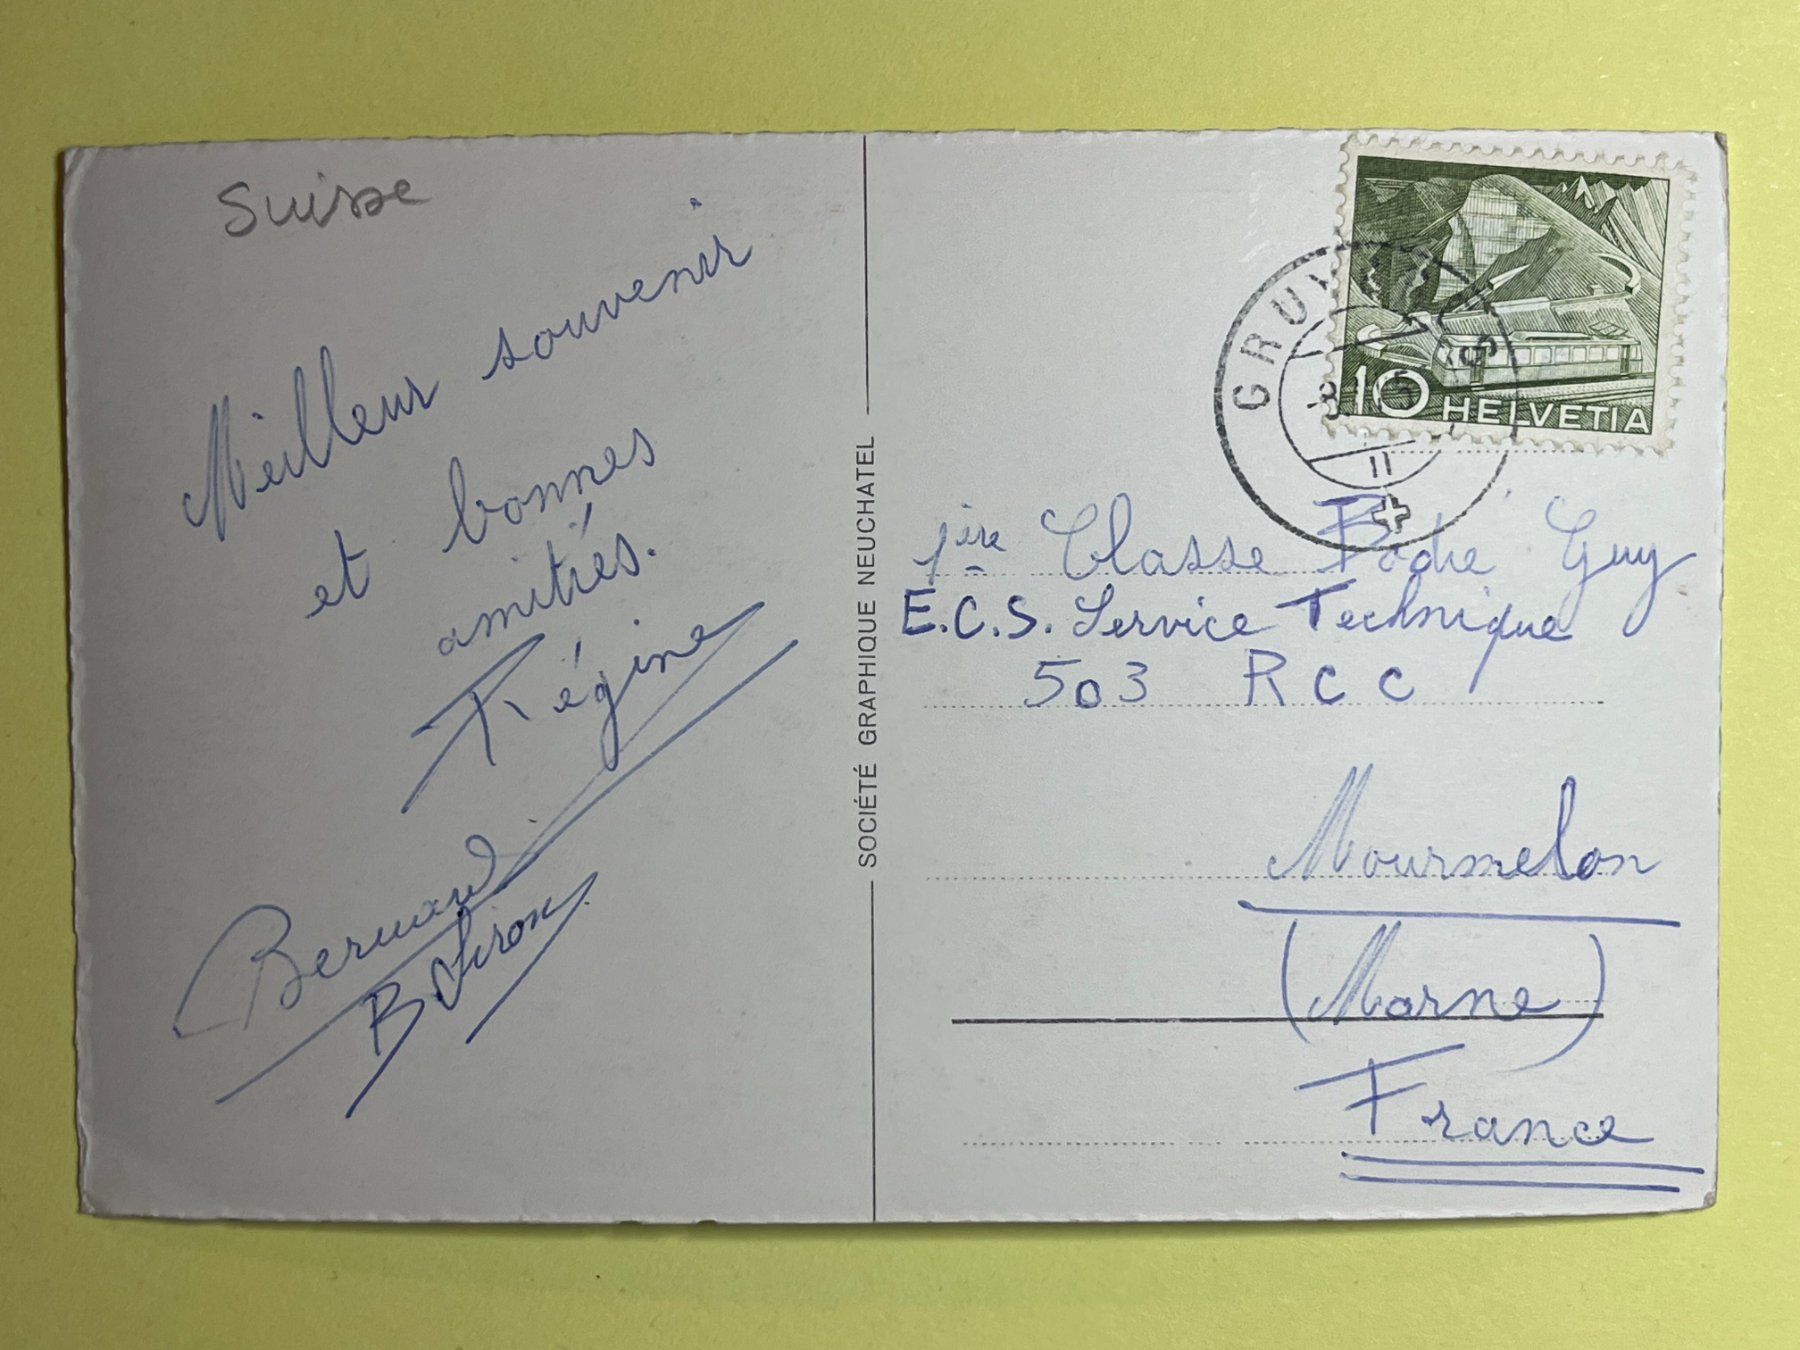 Suisse
Meilleur souvenir
et bonnes
amitiés.
Régine
Bernard
SOCIÉTÉ GRAPHIQUE NEUCHATEL
10 HELVETIA
1ère Classe Boché Guy
E.C.S. Service Technique
503 RCC
Mourmelon
(Marne)
France